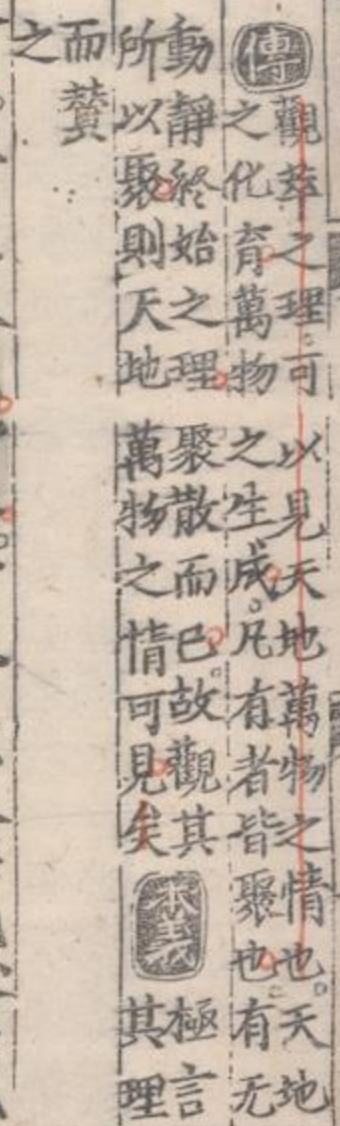 傳
觀萃之理。可以見天地萬物之情也。天地
之化育萬物之生成。凡有者皆聚也。有无
動靜終始之理聚散而已。故觀其
所以聚則天地萬物之情可見矣
本義
極言
其理
而贊
之